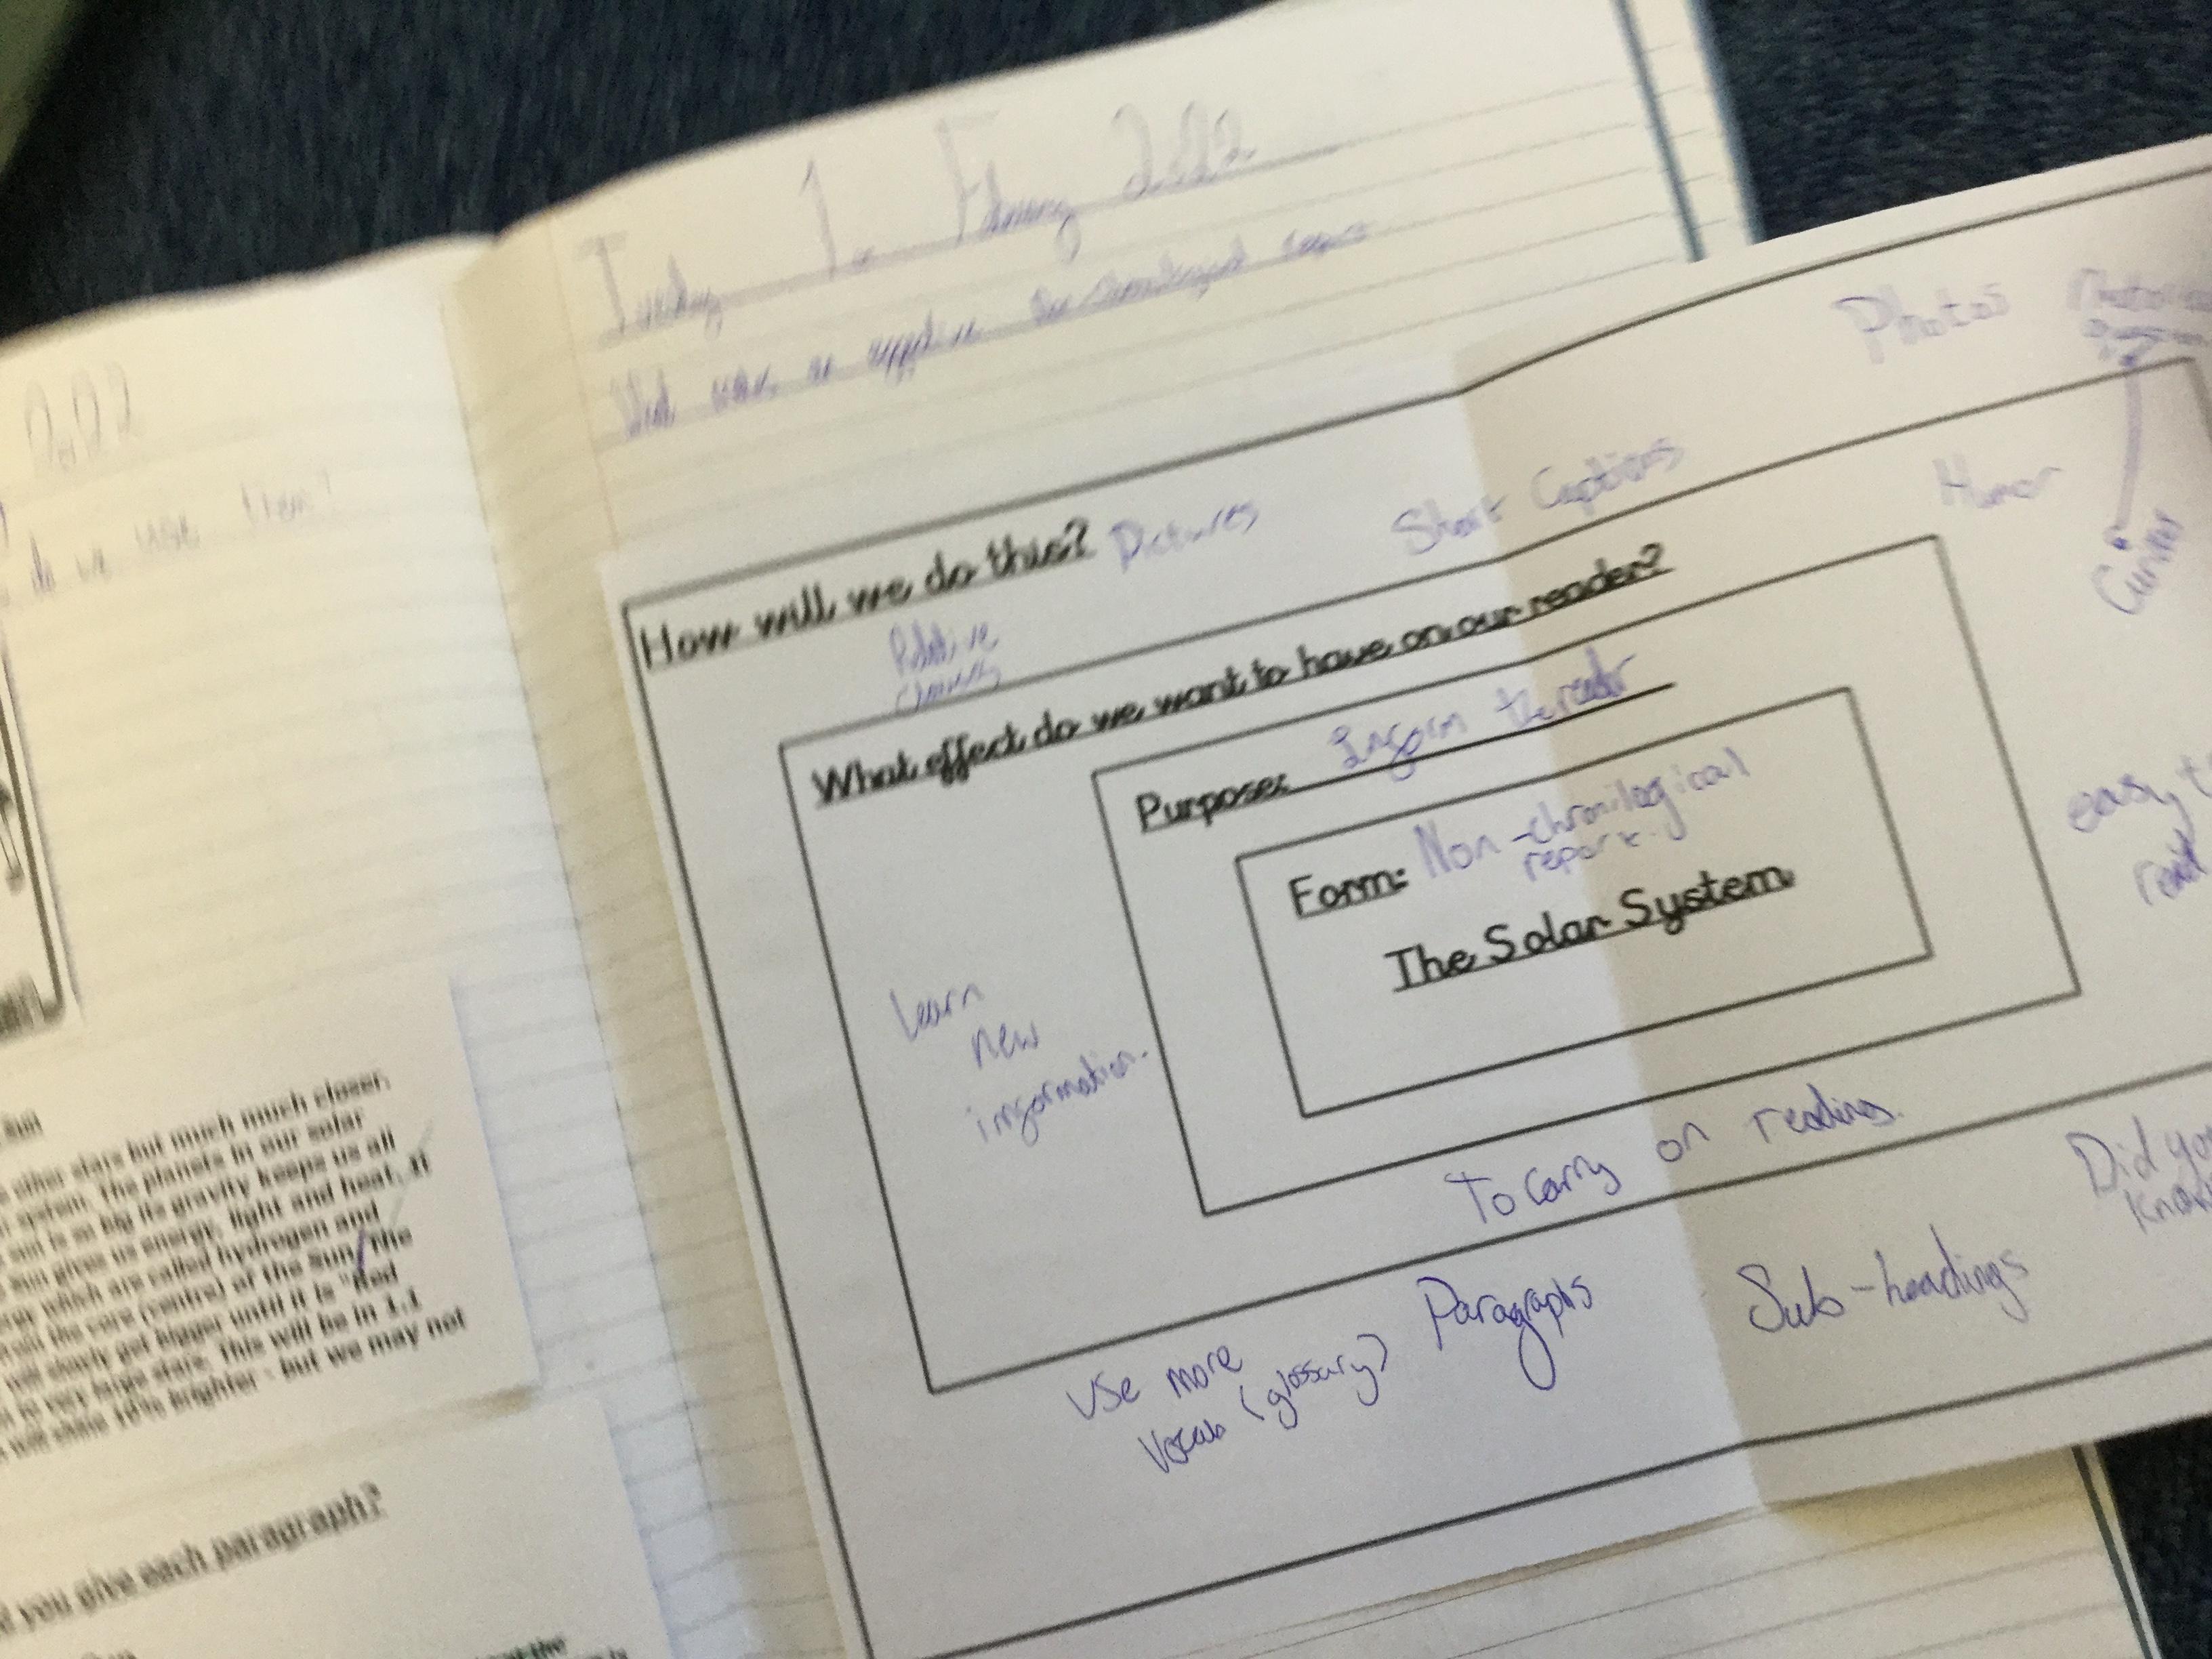 2022
do we use them?
other stars but much much closer.
system. The planets in our solar
sun is so big its gravity keeps us all
Sun gives us energy, light and heat. It
which are called hydrogen and
the core (centre) of the Sun, The
will slowly get bigger until it is "Red
very huge stars. This will be in 1.1
will shine 10% brighter - but we may not
you give each paragraph?
Tuesday 1st February 2022
What makes an effective non-chronological report
How will we do this? Pictures
Short Captions
Photos
Humor
Relative
clauses
What effect do we want to have on our reader?
Purpose: Inform the reader
Form: Non-chronilogical
report.
The Solar System
Learn
new
information.
easy to
read
To carry on reading.
Did you
know
Use more
Vocab (glossary)
Paragraphs
Sub-headings